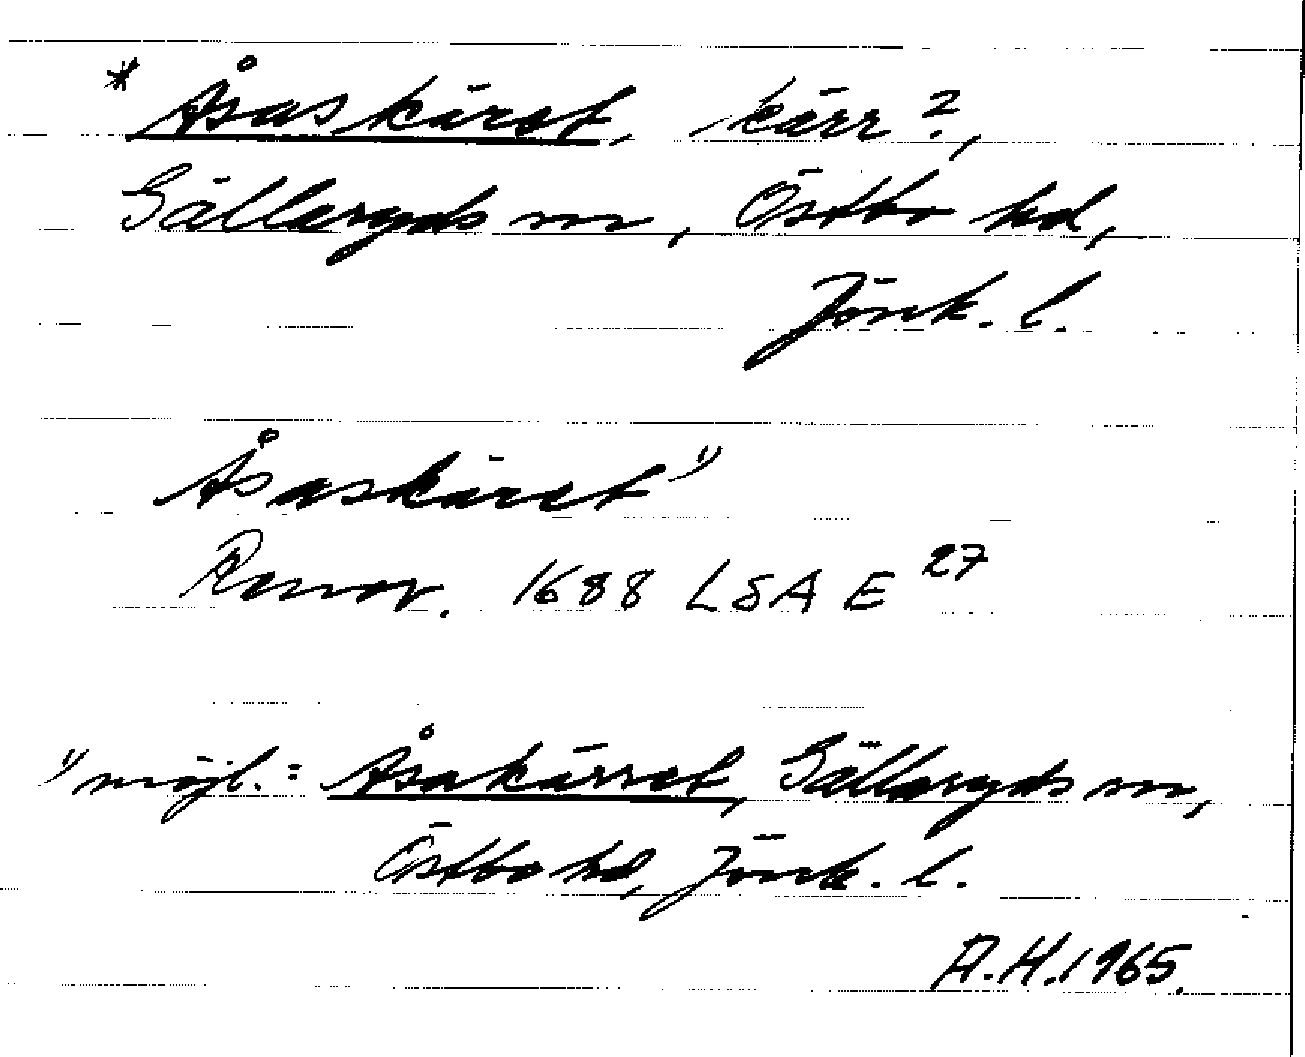 * Åsaskäret, kärr?,
Gällaryds sn, Östbo hd,
Jönk. l.
Åsaskäret 1)
Renov. 1688 LSA E 27
1) möjl. = Åsakärret, Gällaryds sn,
Östbo hd, Jönk. l.
A.H. 1965.